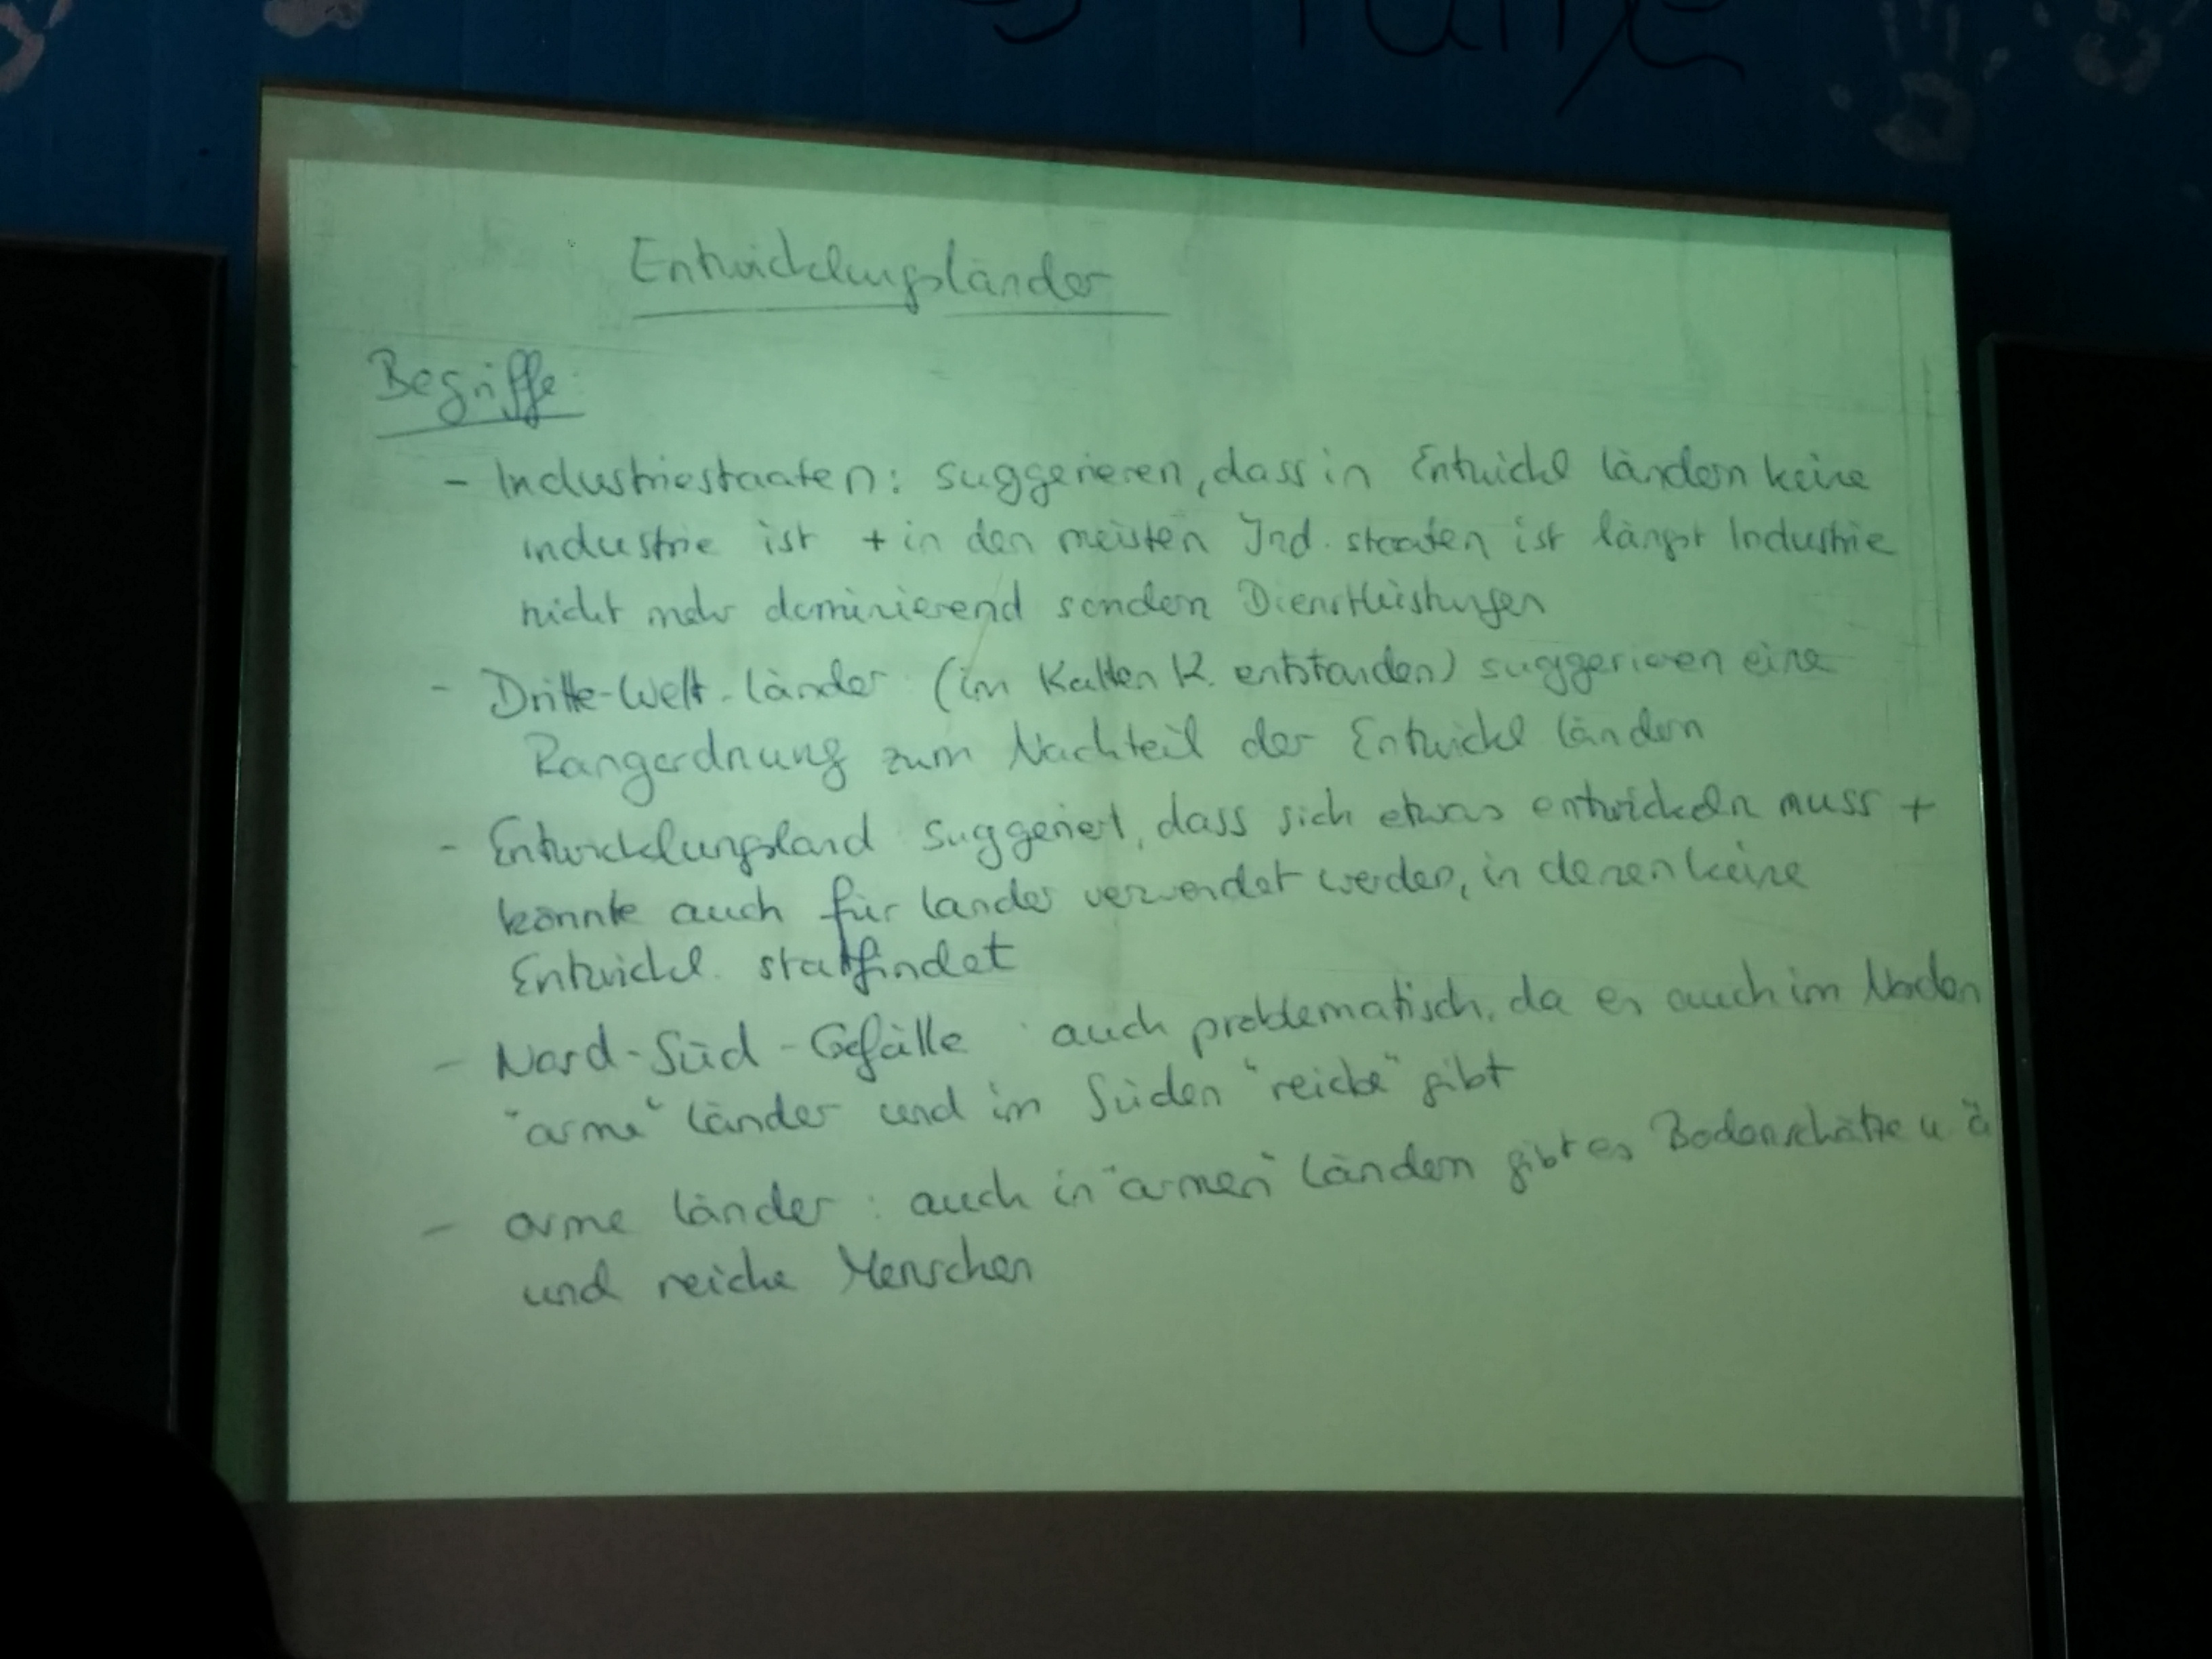 Entwicklungsländer
Begriffe:
- Industriestaaten: suggerieren, dass in Entwickl ländern keine
industrie ist + in den meisten Ind. staaten ist längst Industrie
nicht mehr dominierend sondern Dienstleistungen
- Dritte-Welt-Länder (im Kalten K. entstanden) suggerieren eine
Rangordnung zum Nachteil der Entwickl ländern
- Entwicklungsland suggeriert, dass sich etwas entwickeln muss +
könnte auch für Länder verwendet werden, in denen keine
Entwickl. stattfindet
- Nord-Süd-Gefälle : auch problematisch, da es auch im Norden
"arme" Länder und im Süden "reiche" gibt
- arme Länder : auch in "armen" Ländern gibt es Bodenschätze u ä
und reiche Menschen